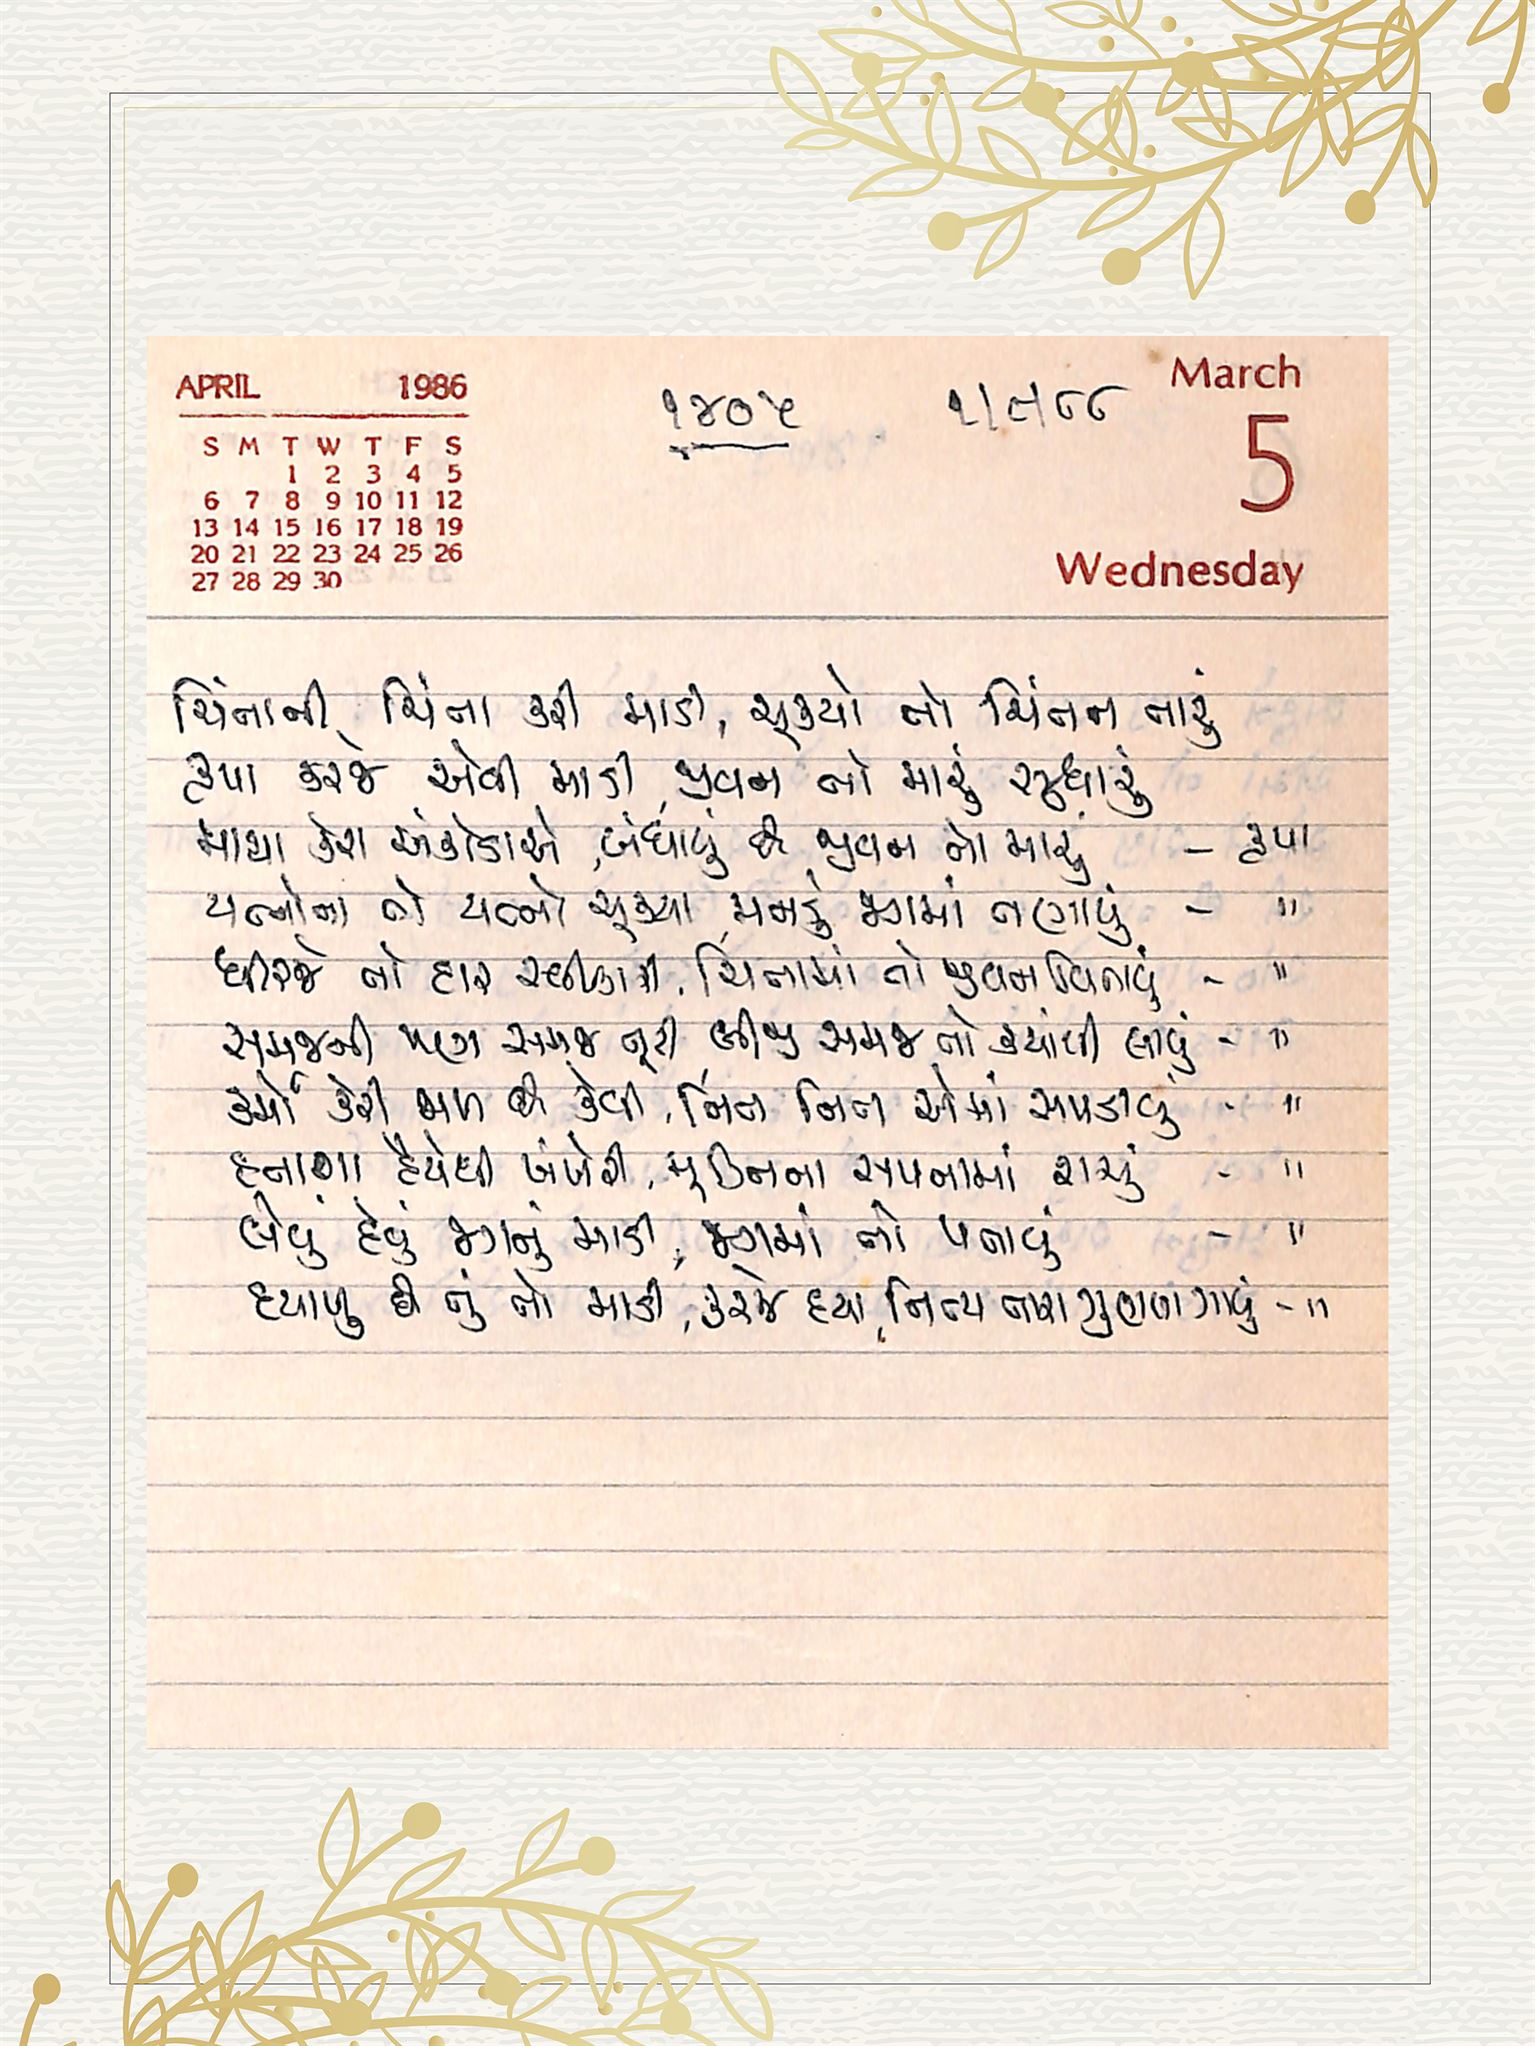 APRIL 1986
S M T W T F S
1 2 3 4 5
6 7 8 9 10 11 12
13 14 15 16 17 18 19
20 21 22 23 24 25 26
27 28 29 30
૧૪૦૫ ૧/૯/૮૮
March
5
Wednesday
ચિંતાની ચિંતા કરી માડી, ચૂક્યો તો ચિંતન તારું
કૃપા કરજે એવી માડી, જીવન તો મારું સુધારું
માયા કેરા અંકોડાએ, બંધાયું છે જીવન તો મારું - કૃપા
યત્નોના તો યત્નો ચૂક્યા, મનડું જગમાં તણાયું - "
ધીરજે તો હાર સ્વીકારી, ચિંતામાં તો જીવન વિતાવું - "
સમજની પણ સમજ તૂટી, બીજી સમજ તો ક્યાંથી લાવું - "
કર્મો કેરી જાળ છે કેવી, નિત નિત એમાં સપડાવું - "
હતાશા હૈયેથી ખંખેરી, મુક્તિના સપનામાં રાચું - "
લેવું દેવું જગનું માડી, જગમાં તો પતાવું - "
દયાળુ છે તું તો માડી, કરજે દયા, નિત્ય તારા ગુણલા ગાવું - "